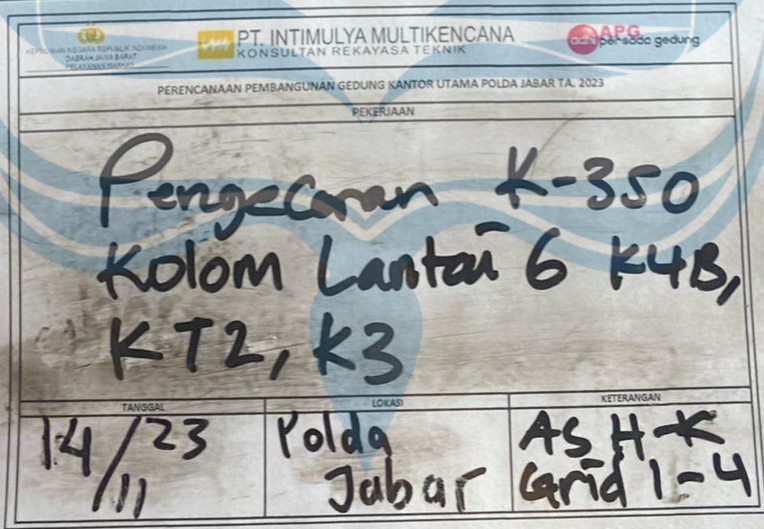 KEPOLISIAN NEGARA REPUBLIK INDONESIA
DAERAH JAWA BARAT
PT. INTIMULYA MULTIKENCANA
KONSULTAN REKAYASA TEKNIK
APG
persada gedung
PERENCANAAN PEMBANGUNAN GEDUNG KANTOR UTAMA POLDA JABAR TA. 2023
PEKERJAAN
Pengecoran K-350
Kolom Lantai 6 K4B,
KT2, K3
TANGGAL
14/11/23
LOKASI
Polda
Jabar
KETERANGAN
AS H-K
Grid 1-4